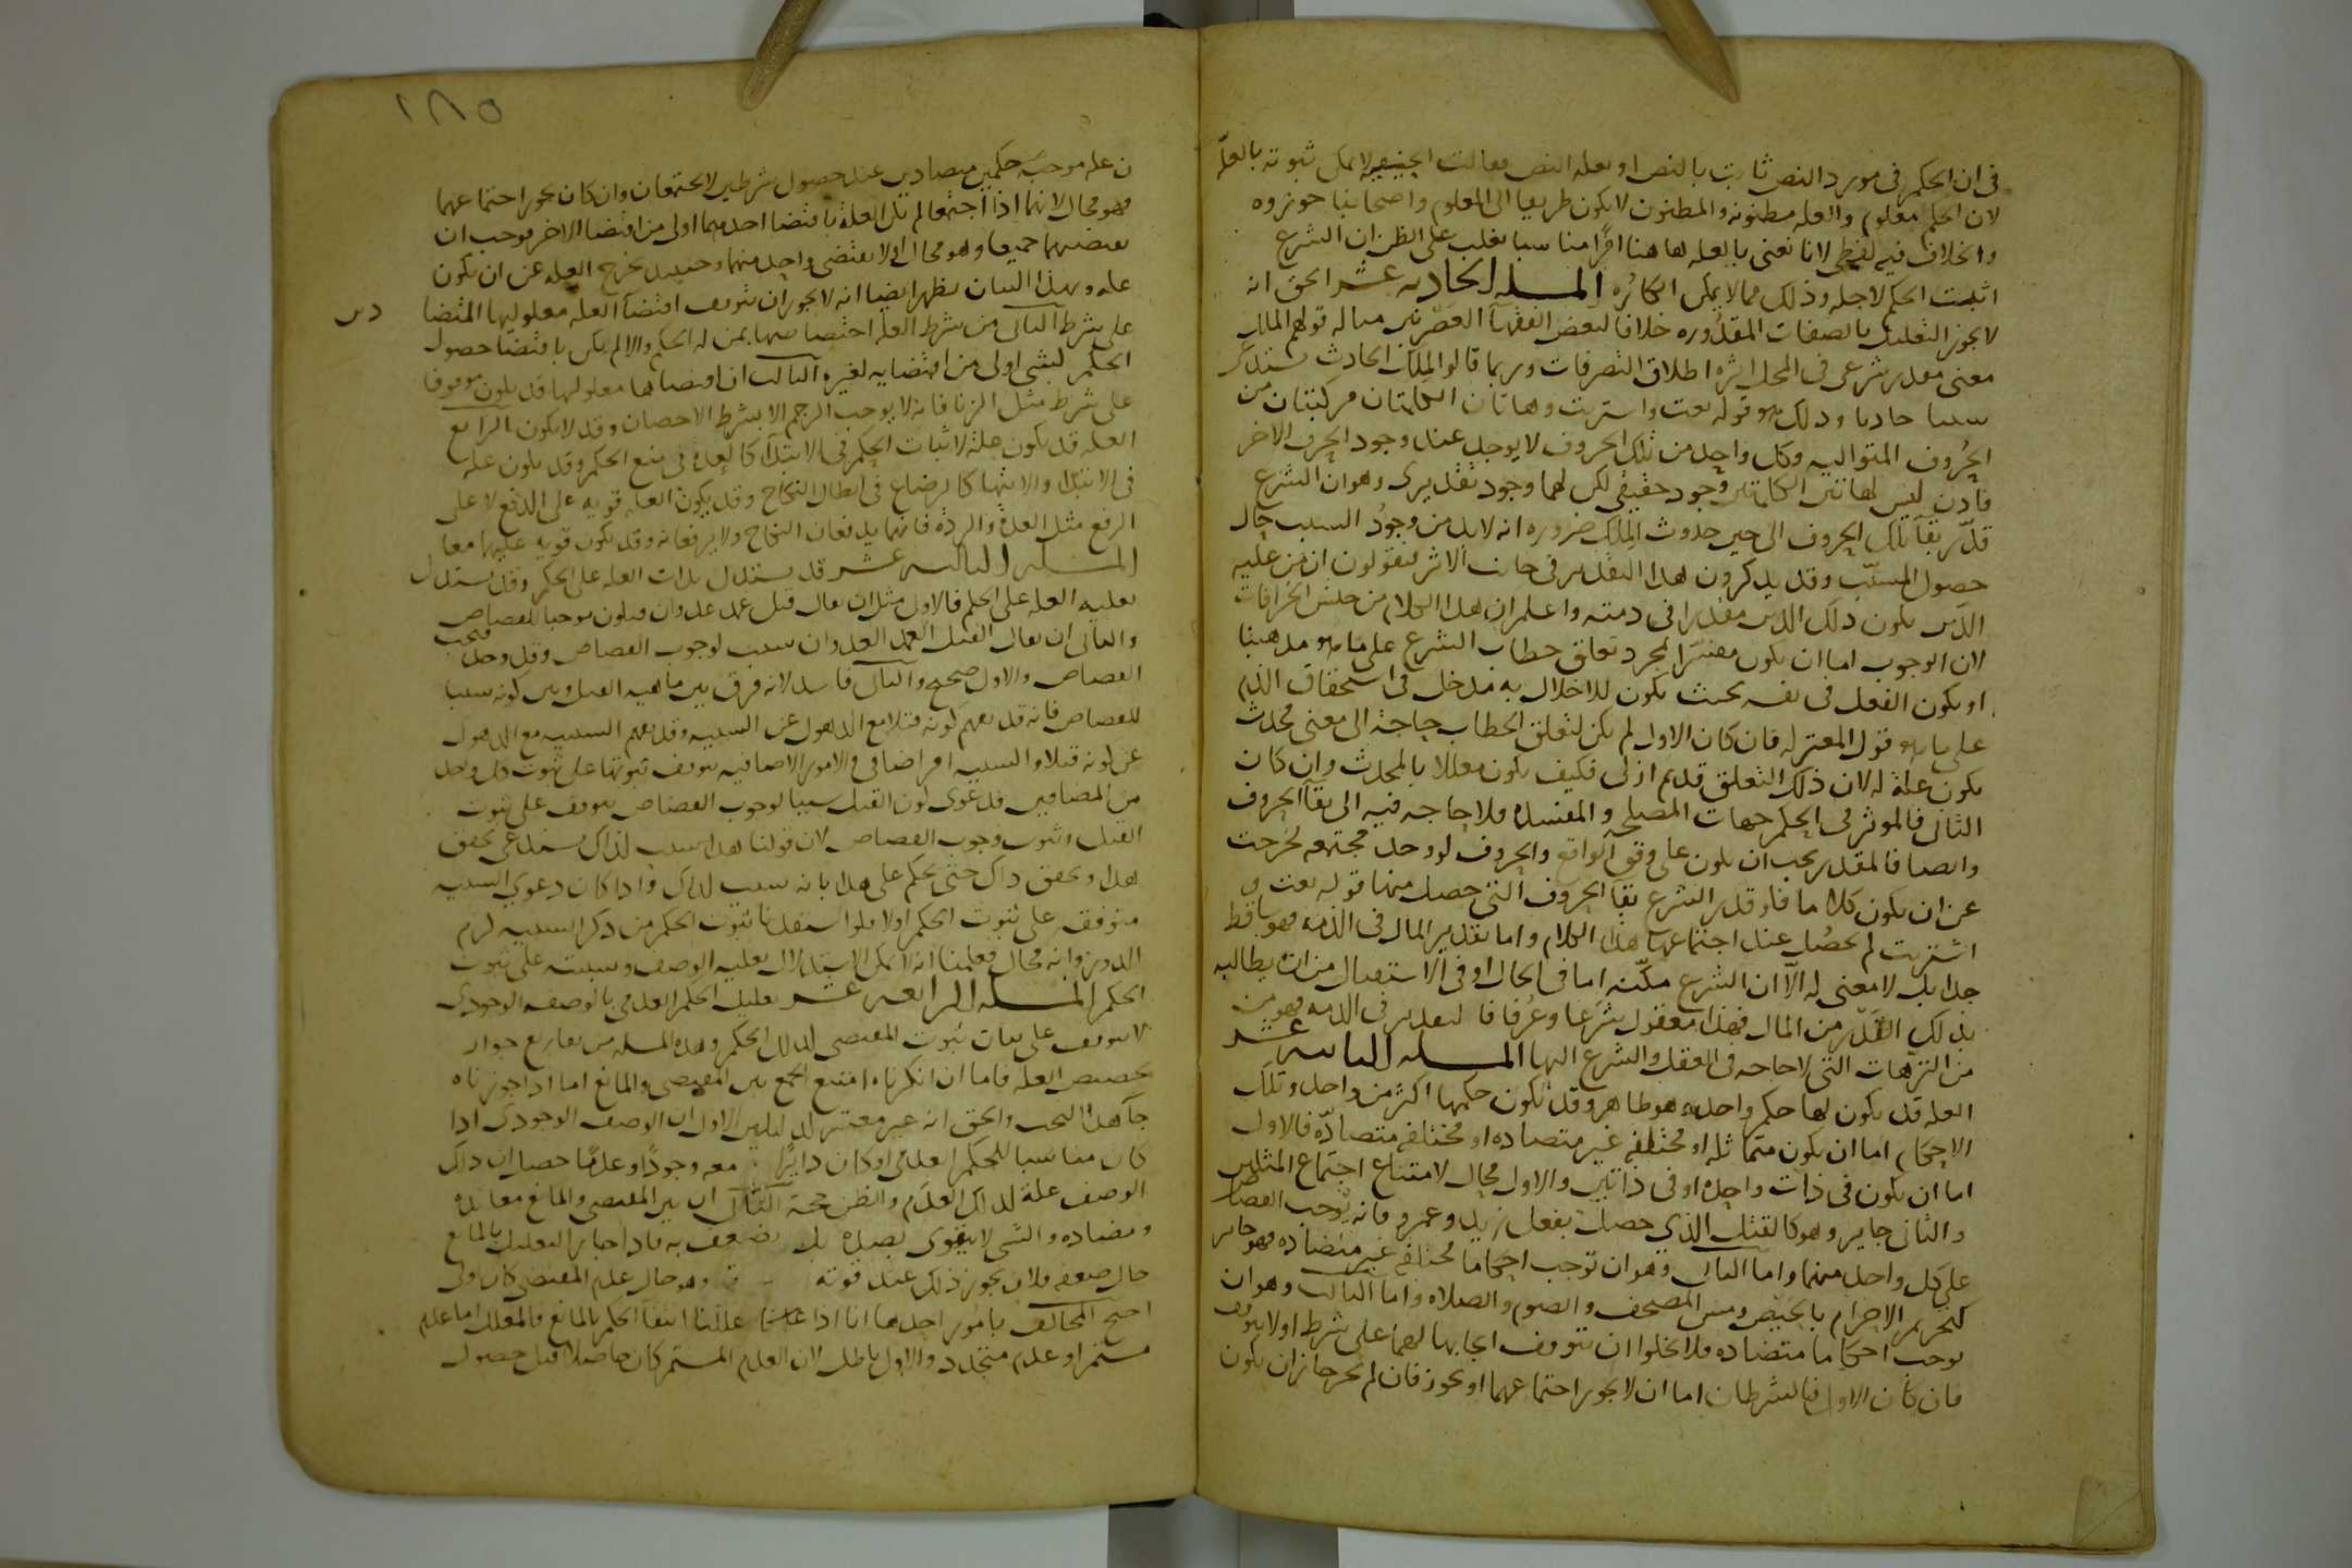 فى ان الحكم فى مورد النص ثابت بالنص او بعله النص فقالت الحنفيه لا يمكن ثبوته بالعلّه
لان الحكم معلوم والعله مظنونه والمظنون لا يكون طريقا الى المعلوم واصحابنا جوزوه
والخلاف فيه لفظي لانا نعنى بالعله هاهنا امرًا مناسبا يغلب على الظن ان الشرع
اثبت الحكم لاجله وذلك مما لا يمكن انكاره المسله الحاديه عشر الحق انه
لا يجوز التعليل بالصفات المقدوره خلافا لبعض الفقهآ العصريين مثاله قولهم الملك
معنى مقدر شرعى فى المحل اثره اطلاق التصرفات وربما قالوا الملك الحادث يستدعى
سببا حادثا وذلك هو قوله بعت واشتريت وهاتان الكلمتان مركبتان من
الحروف المتواليه وكل واحد من تلك الحروف لا يوجد عند وجود الحرف الاخر
فاذن ليس لهاتين الكلمتين وجود حقيقي لكن لهما وجود تقديرى وهو ان الشرع
قدّر بقآ تلك الحروف الى حين حدوث الملك ضروره انه لا بد من وجود السبب حال
حصول المسبّب وقد يذكرون هذا التقدير فى جانب الاثر فيقولون ان من عليه
الدين يكون ذلك الدين مقدرا فى ذمته واعلم ان هذا الكلام من جنس الخرافات
لان الوجوب اما ان يكون مفسرا بمجرد تعلق خطاب الشرع على ما هو مذهبنا
او يكون الفعل فى نفسه بحيث يكون للاخلال به مدخل فى استحقاق الذم
على ما هو قول المعتزله فان كان الاول لم يكن لتعلق الخطاب حاجة الى معنى محدث
يكون علة له لان ذلك التعلق قديم ازلى فكيف يكون معللا بالمحدث وان كان
الثانى فالموثر فى الحكم جهات المصلحه والمفسده فلا حاجه فيه الى بقآ الحروف
وايضا فالمقدر يجب ان يكون على وفق الواقع والحروف لو وجدت مجتمعه لخرجت
عن ان يكون كلاما فلو قدر الشرع بقآ الحروف التى حصل منها قوله بعت و
اشتريت لم يحصل عند اجتماعها هذا الكلام واما تقدير المال فى الذمه فهو ساقط
جدا بل لا معنى له الا ان الشرع مكّنه اما فى الحال او فى الاستقبال من ان يطالبه
بذلك القدر من المال فهذا معقول شرعا وعرفا فاما التقدير فى الذمه فهو من
من الترهات التى لا حاجه فى العقل والشرع اليها المسله الثانيه عشر
العله قد يكون لها حكم واحد وهو ظاهر وقد يكون حكمها اكثر من واحد وتلك
الاحكام اما ان يكون متماثله او مختلفه غير متضاده او مختلفه متضادّه فالاول
اما ان يكون فى ذات واحده او فى ذاتين والاول محال لامتناع اجتماع المثلين
والثانى جايز وهو كالقتل الذى حصل بفعل زيد وعمرو فانه يوجب القصاص
على كل واحد منهما واما الثانى وهو ان توجب احكاما مختلفه غير متضاده فهو جايز
كتحريم الاحرام بالحيض ومس المصحف والصوم والصلاه واما الثالث وهو ان
توجب احكاما متضاده فلا يخلوا ان يتوقف ايجابها لهما على شرط او لا يتوقف
فان كان الاول فالشرطان اما ان لا يجوز اجتماعهما او يجوز فان لم يجز جاز ان يكون
١٨٥
ن عله موجبة حكمين متضادين عند حصول شرطين لا يجتمعان وان كان يجوز اجتماعهما
فهو محال لانهما اذا اجتمعا لم تكن العلة باقتضا احدهما اولى من اقتضا الاخر فوجب ان
تقتضيهما جميعا وهو محال او لا يقتضى واحد منهما وحينئذ يخرج العله عن ان يكون
عله وبهذا البيان يظهر ايضا انه لا يجوز ان يتوقف اقتضآ العله معلوليها المتضا دين
على شرط الثانى من شرط العلة اختصاصها بمن له الحكم والا لم يكن باقتضا حصول
الحكم لشى اولى من اقتضايه لغيره الثالث ان اقتضاها معلولها قد يكون موقوفا
على شرط مثل الزنا فانه لا يوجب الرجم الا بشرط الاحصان وقد لا يكون الرابع
العله قد يكون علة لاثبات الحكم فى الابتدآ كالعدة فى منع الحكم وقد يكون عله
فى الابتدا والانتها كالرضاع فى ابطال النكاح وقد يكون العله قويه على الدفع لا على
الرفع مثل العدة والردة فانهما يدفعان النكاح ولا يرفعانه وقد يكون قويه عليهما معا
المسله الثالثه عشر قد يستدل بذات العله على الحكم وقد يستدل
بعليه العله على الحكم فالاول مثل ان يقال قتل عمد عدوان فيكون موجبا للقصاص
والثانى ان يقال القتل العمد العدوان سبب لوجوب القصاص وقد وجد فيجب
القصاص والاول صحيح والثانى فاسد لانه فرق بين ماهيه القتل وبين كونه سببا
للقصاص فانه قد يفهم كونه قتلا مع الذهول عن السببيه وقد يفهم السببيه مع الذهول
عن كونه قتلا والسببيه امر اضافى والامور الاضافيه يتوقف ثبوتها على ثبوت كل واحد
من المضافين فدعوى كون القتل سببا لوجوب القصاص يتوقف على ثبوت
القتل وثبوت وجوب القصاص لان قولنا هذا سبب لذاك يستدعى تحقق
هذا وتحقق ذاك حتى يحكم على هذا بانه سبب لذاك واذا كان دعوى السببيه
متوقفه على ثبوت الحكم اولا فلو استفدنا ثبوت الحكم من ذكر السببيه لزم
الدور وانه محال فعلمنا انه لا يمكن الاستدلال بعليه الوصف وسببته على ثبوت
الحكم المسله الرابعه عشر تعليل الحكم العدمى بالوصف الوجودى
لا يتوقف على بيان ثبوت المقتضى لذلك الحكم وهذه المسله من تفاريع جواز
تخصيص العله فاما ان انكرناه امتنع الجمع بين المقتضى والمانع اما اذا جوزناه
جآ هذا البحث والحق انه غير معتبر لدليلين الاول ان الوصف الوجودى اذا
كان مناسبا للحكم العدمى او كان دايرًا معه وجودًا وعدمًا حصل ان ذاك
الوصف علة لذلك العدم والظن حجة الثانى ان بين المقتضى والمانع معانده
ومضاده والشى لا يتقوى بضده بل يضعف به فاذا جاز التعليل بالمانع
حال ضعفه فلان يجوز ذلك عند قوته وهو حال عدم المقتضى كان اولى
احتج المخالف بامور احدها انا اذا عللنا انتفآ الحكم بالمانع فالمعلل اما عدم
مستمر او عدم متجدد والاول باطل لان العدم المستمر كان حاصلا قبل حصول